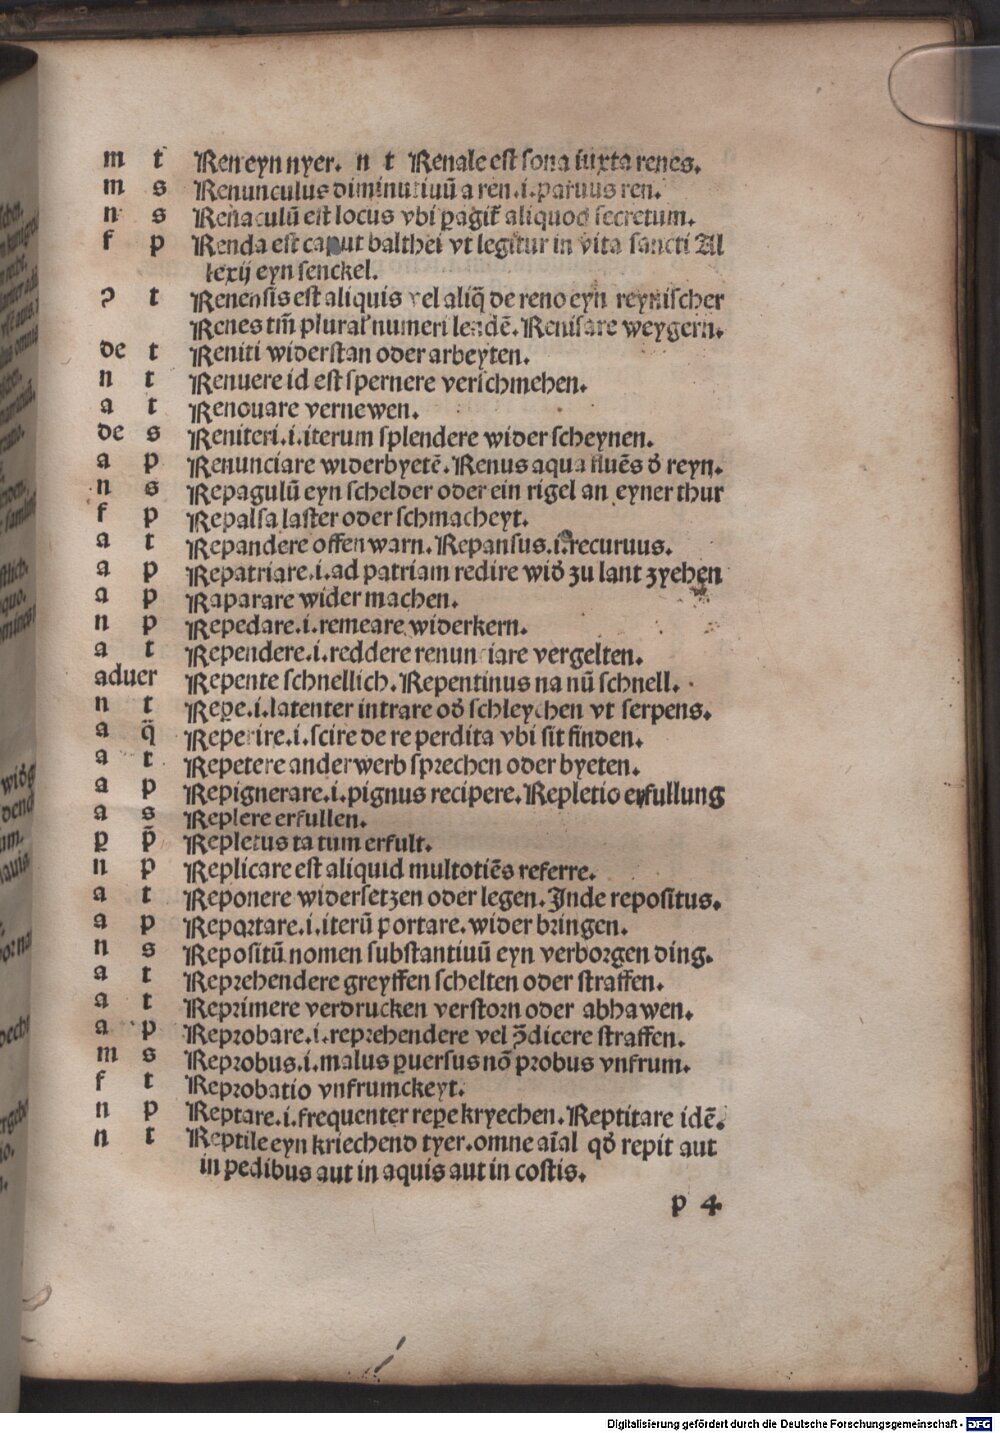 m t Ren eyn nyer. n t Renale est sona iuxta renes.
m s Renunculus diminutiuū a ren .i. paruus ren.
n s Renaculū est locus vbi ꝑagit̄ aliquod secretum.
f p Renda est caput balthei vt legitur in vita sancti Al
lexij eyn senckel.
ꝯ t Renensis est aliquis vel aliq̄ de reno eyn reynischer
Renes tm̄ plural' numeri lendē. Renisare weygern.
de t Reniti widerstan oder arbeyten.
n t Renuere id est spernere verschmehen.
a t Renouare vernewen.
de s Reniteri .i. iterum splendere wider scheynen.
a p Renunciare widerbyetē. Renus aqua fluēs d' reyn.
n s Repagulū eyn schelder oder ein rigel an eyner thur
f p Repalsa laster oder schmacheyt.
a t Repandere offen warn. Repansus .i. recuruus.
a p Repatriare .i. ad patriam redire wid' zu lant zyehen
a p Raparare wider machen.
n p Repedare .i. remeare widerkern.
a t Rependere .i. reddere renunciare vergelten.
aduer Repente schnellich. Repentinus na nū schnell.
n t Repe .i. latenter intrare od' schleychen vt serpens.
a q̈ Reperire .i. scire de re perdita vbi sit finden.
a t Repetere anderwerb sprechen oder byeten.
a p Repignerare .i. pignus recipere. Repletio erfullung
a s Replere erfullen.
ꝑ p̄ Repletus ta tum erfult.
n p Replicare est aliquid multotiēs referre.
a t Reponere widersetzen oder legen. Inde repositus.
a p Reportare .i. iterū portare. wider bringen.
n s Repositū nomen substantiuū eyn verborgen ding.
a t Reprehendere greyffen schelten oder straffen.
a t Reprimere verdrucken verstorn oder abhawen.
a p Reprobare .i. reprehendere vel ꝯ̄dicere straffen.
m s Reprobus .i. malus ꝑuersus nō probus vnfrum.
f t Reprobatio vnfrumckeyt.
n p Reptare .i. frequenter repe kryechen. Reptitare idē.
n t Reptile eyn kriechend tyer. omne aīal qd' repit aut
in pedibus aut in aquis aut in costis.
p 4
Digitalisierung gefördert durch die Deutsche Forschungsgemeinschaft - DFG